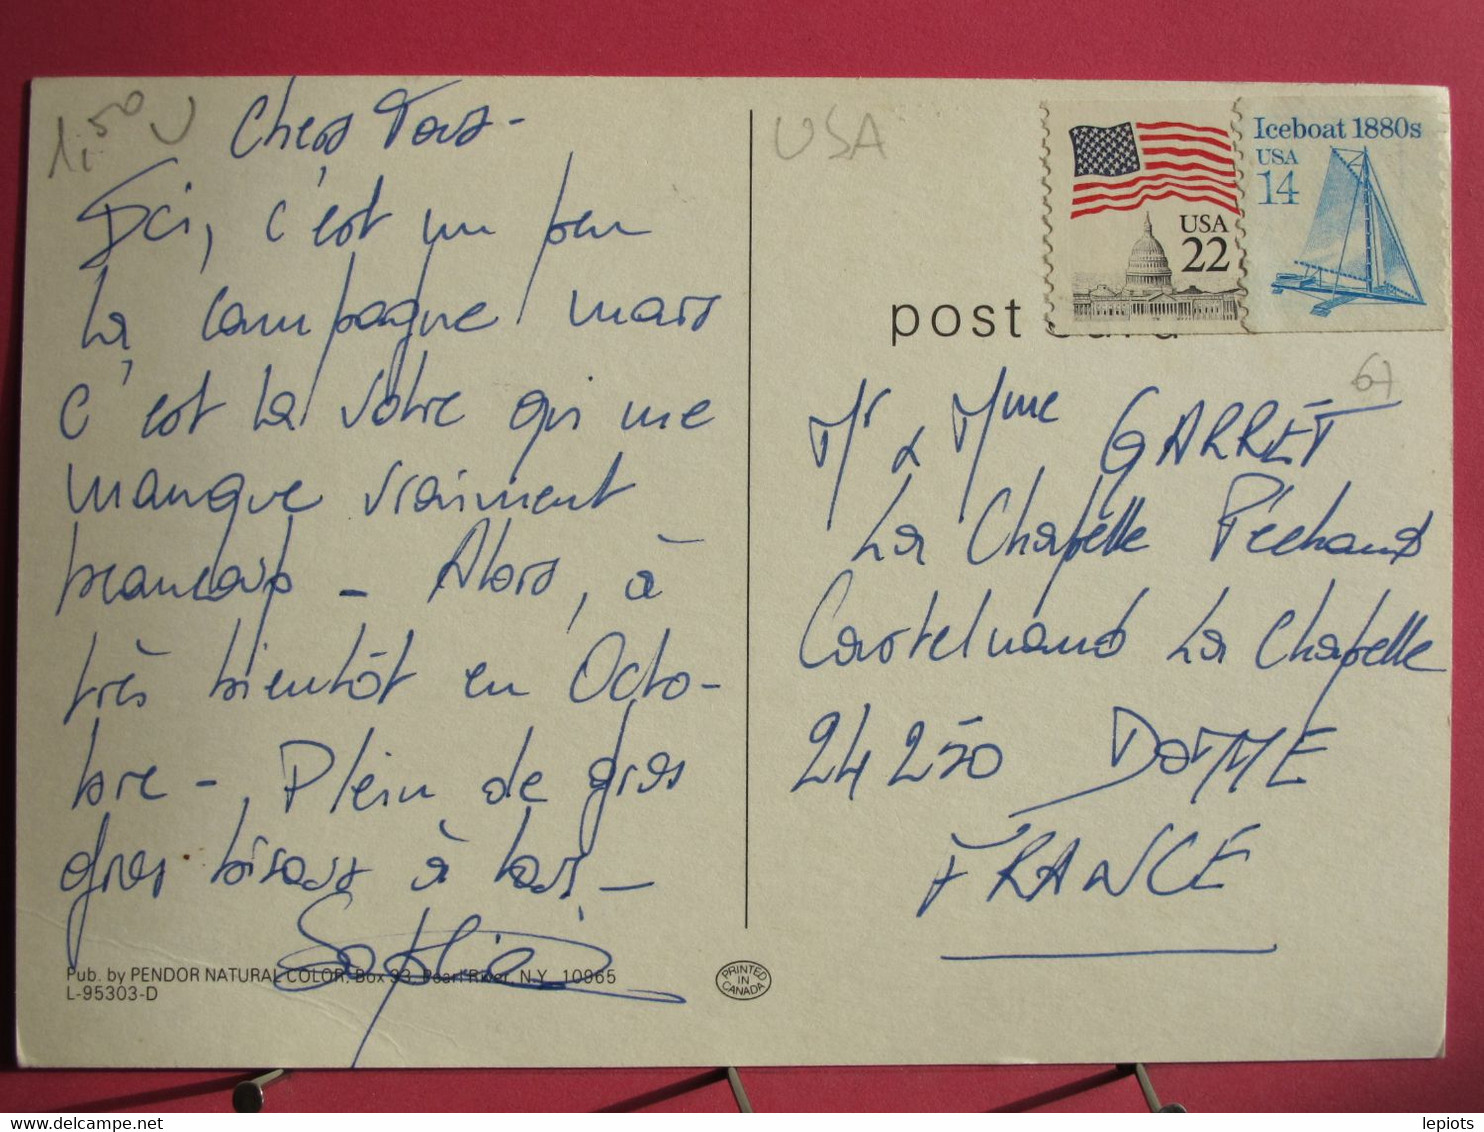 1,50 U
Chers Tous -
Ici, c'est un peu
la campagne mais
c'est la votre qui me
manque vraiment
beaucoup - Alors, à
très bientôt en Octo-
bre -, Plein de gros
gros bisous à tous -
Sophie
Pub. by PENDOR NATURAL COLOR, Box 93, Pearl River, N.Y. 10965
L-95303-D
PRINTED
IN
CANADA
USA
USA
22
Iceboat 1880s
USA
14
post card
67
Mr & Mme GARRET
La Chapelle Péchaud
Castelnaud La Chapelle
24250 DOMME
FRANCE
delcampe.net
lepiots